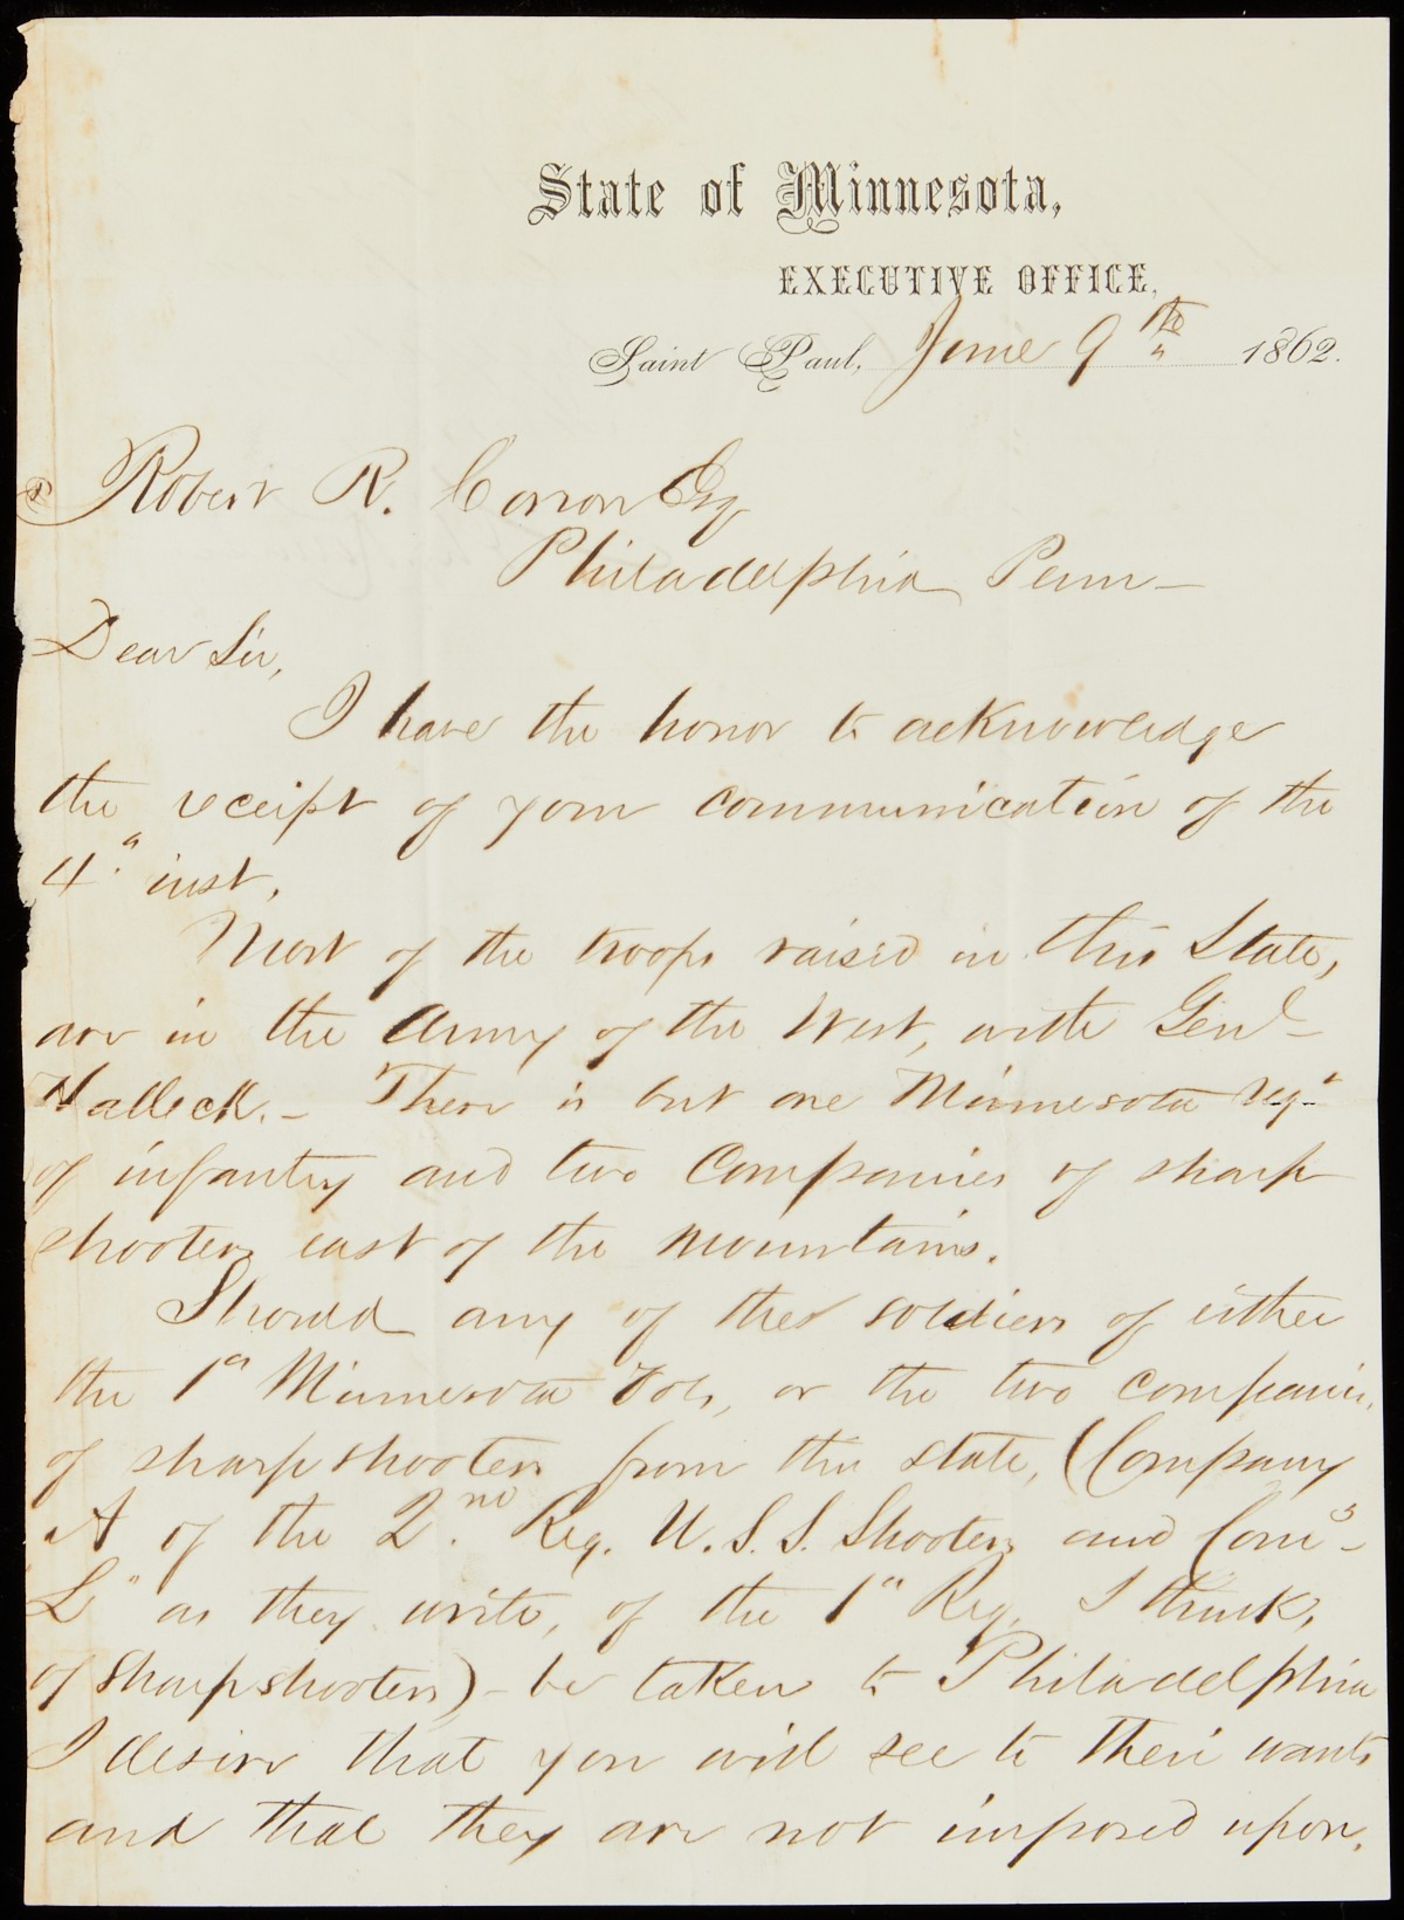 State of Minnesota,
EXECUTIVE OFFICE,
Saint Paul, June 9th 1862.
Robert R. Corson Esq
Philadelphia Penn—
Dear Sir,
I have the honor to acknowledge
the receipt of your communication of the
4" inst.
Most of the troops raised in this State,
are in the Army of the West, with Genl—
Halleck.— There is but one Minnesota regt
of infantry and two Companies of sharp
shooters east of the mountains.
Should any of the soldiers of either
the 1" Minnesota Vols, or the two companies
of sharpshooters from this state, (Company
A of the 2nd Reg. U.S.S. Shooters and Com"—
L" as they write, of the 1" Reg. I think,
of sharpshooters)— be taken to Philadelphia
I desire that you will see to their wants
and that they are not imposed upon.